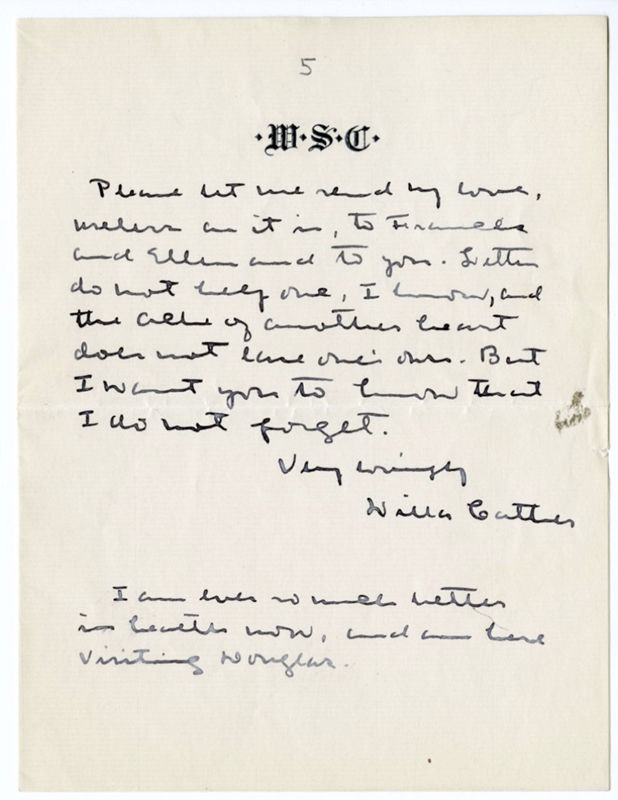 5
·W·S·C·
Please let me send my love,
useless as it is, to Frances
and Ellen and to you. Letters
do not help one, I know, and
the ache of another heart
does not ease one's own. But
I want you to know that
I do not forget.
Very lovingly
Willa Cather
I am ever so much better
in health now, and am here
visiting Douglas.